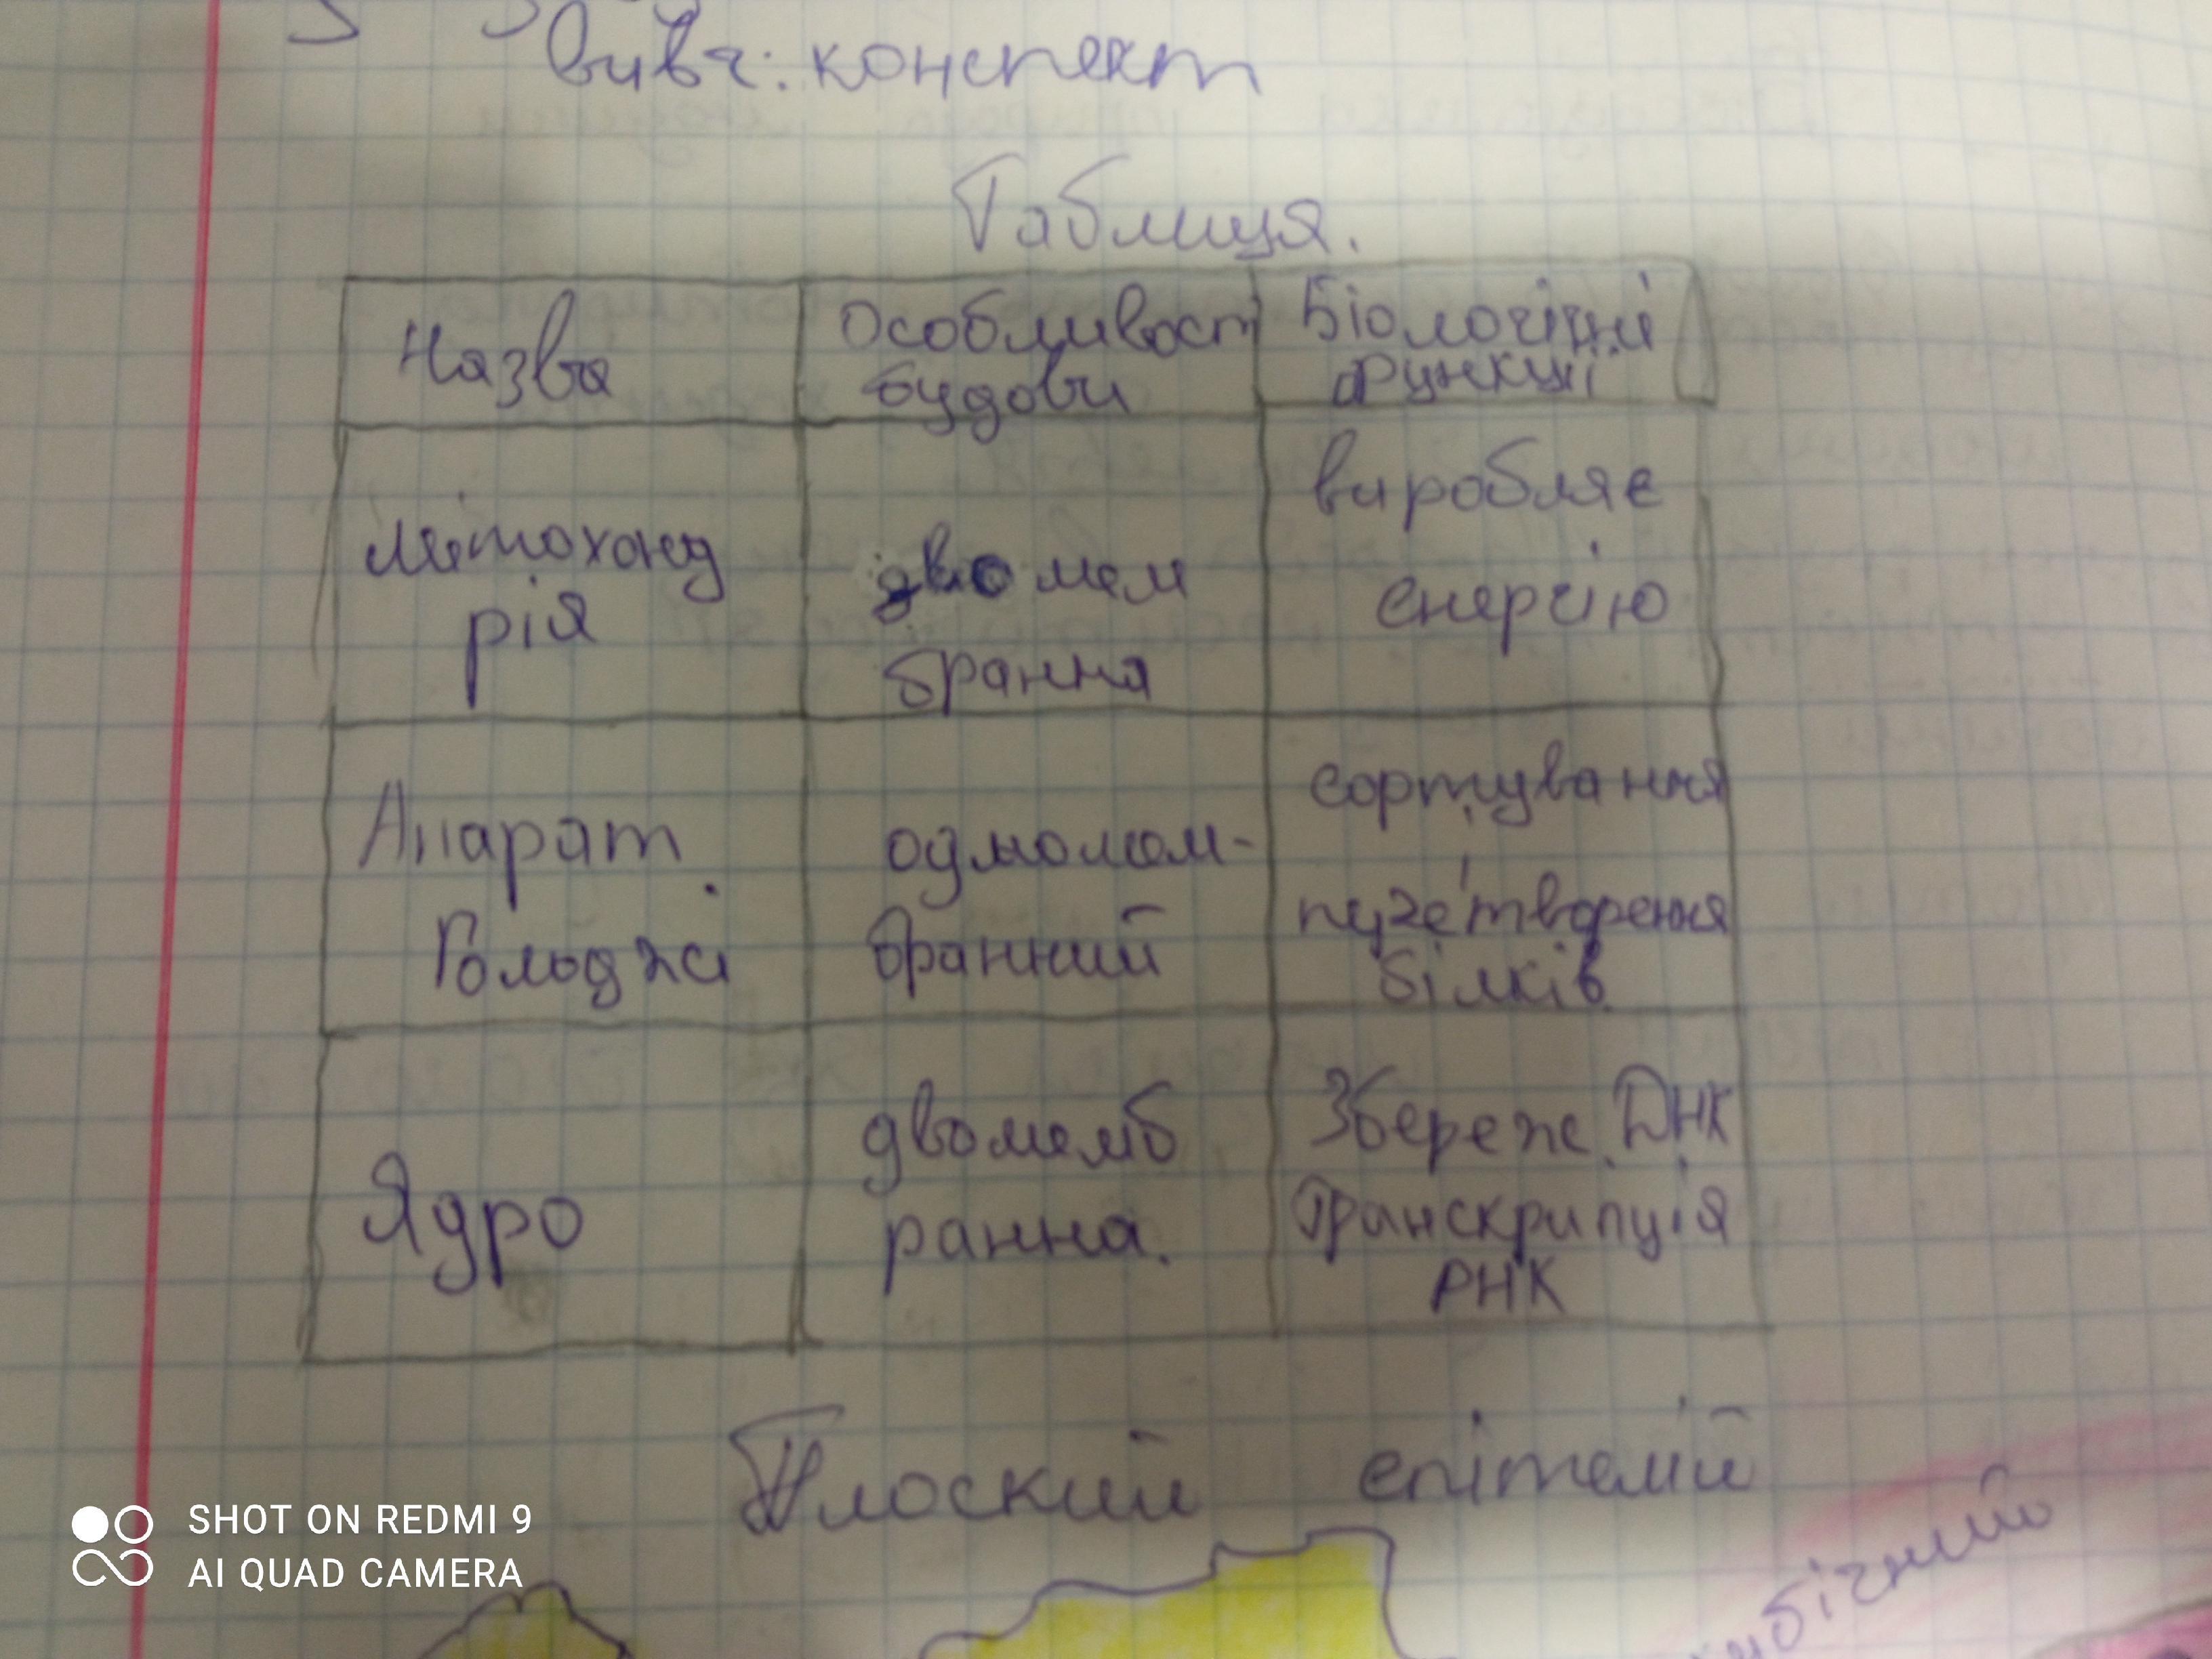 вивч: конспект
Таблиця.
Назва
Особливост
будови
Біологічні
функції
Мітохонд
рія
двомем
бранна
виробляє
енергію
Апарат
Гольджі
одномем-
бранний
сортування
білків
Ядро
двомемб
ранна.
Збереж. ДНК
Транскрипція
РНК
Плоский епітелій
SHOT ON REDMI 9
AI QUAD CAMERA